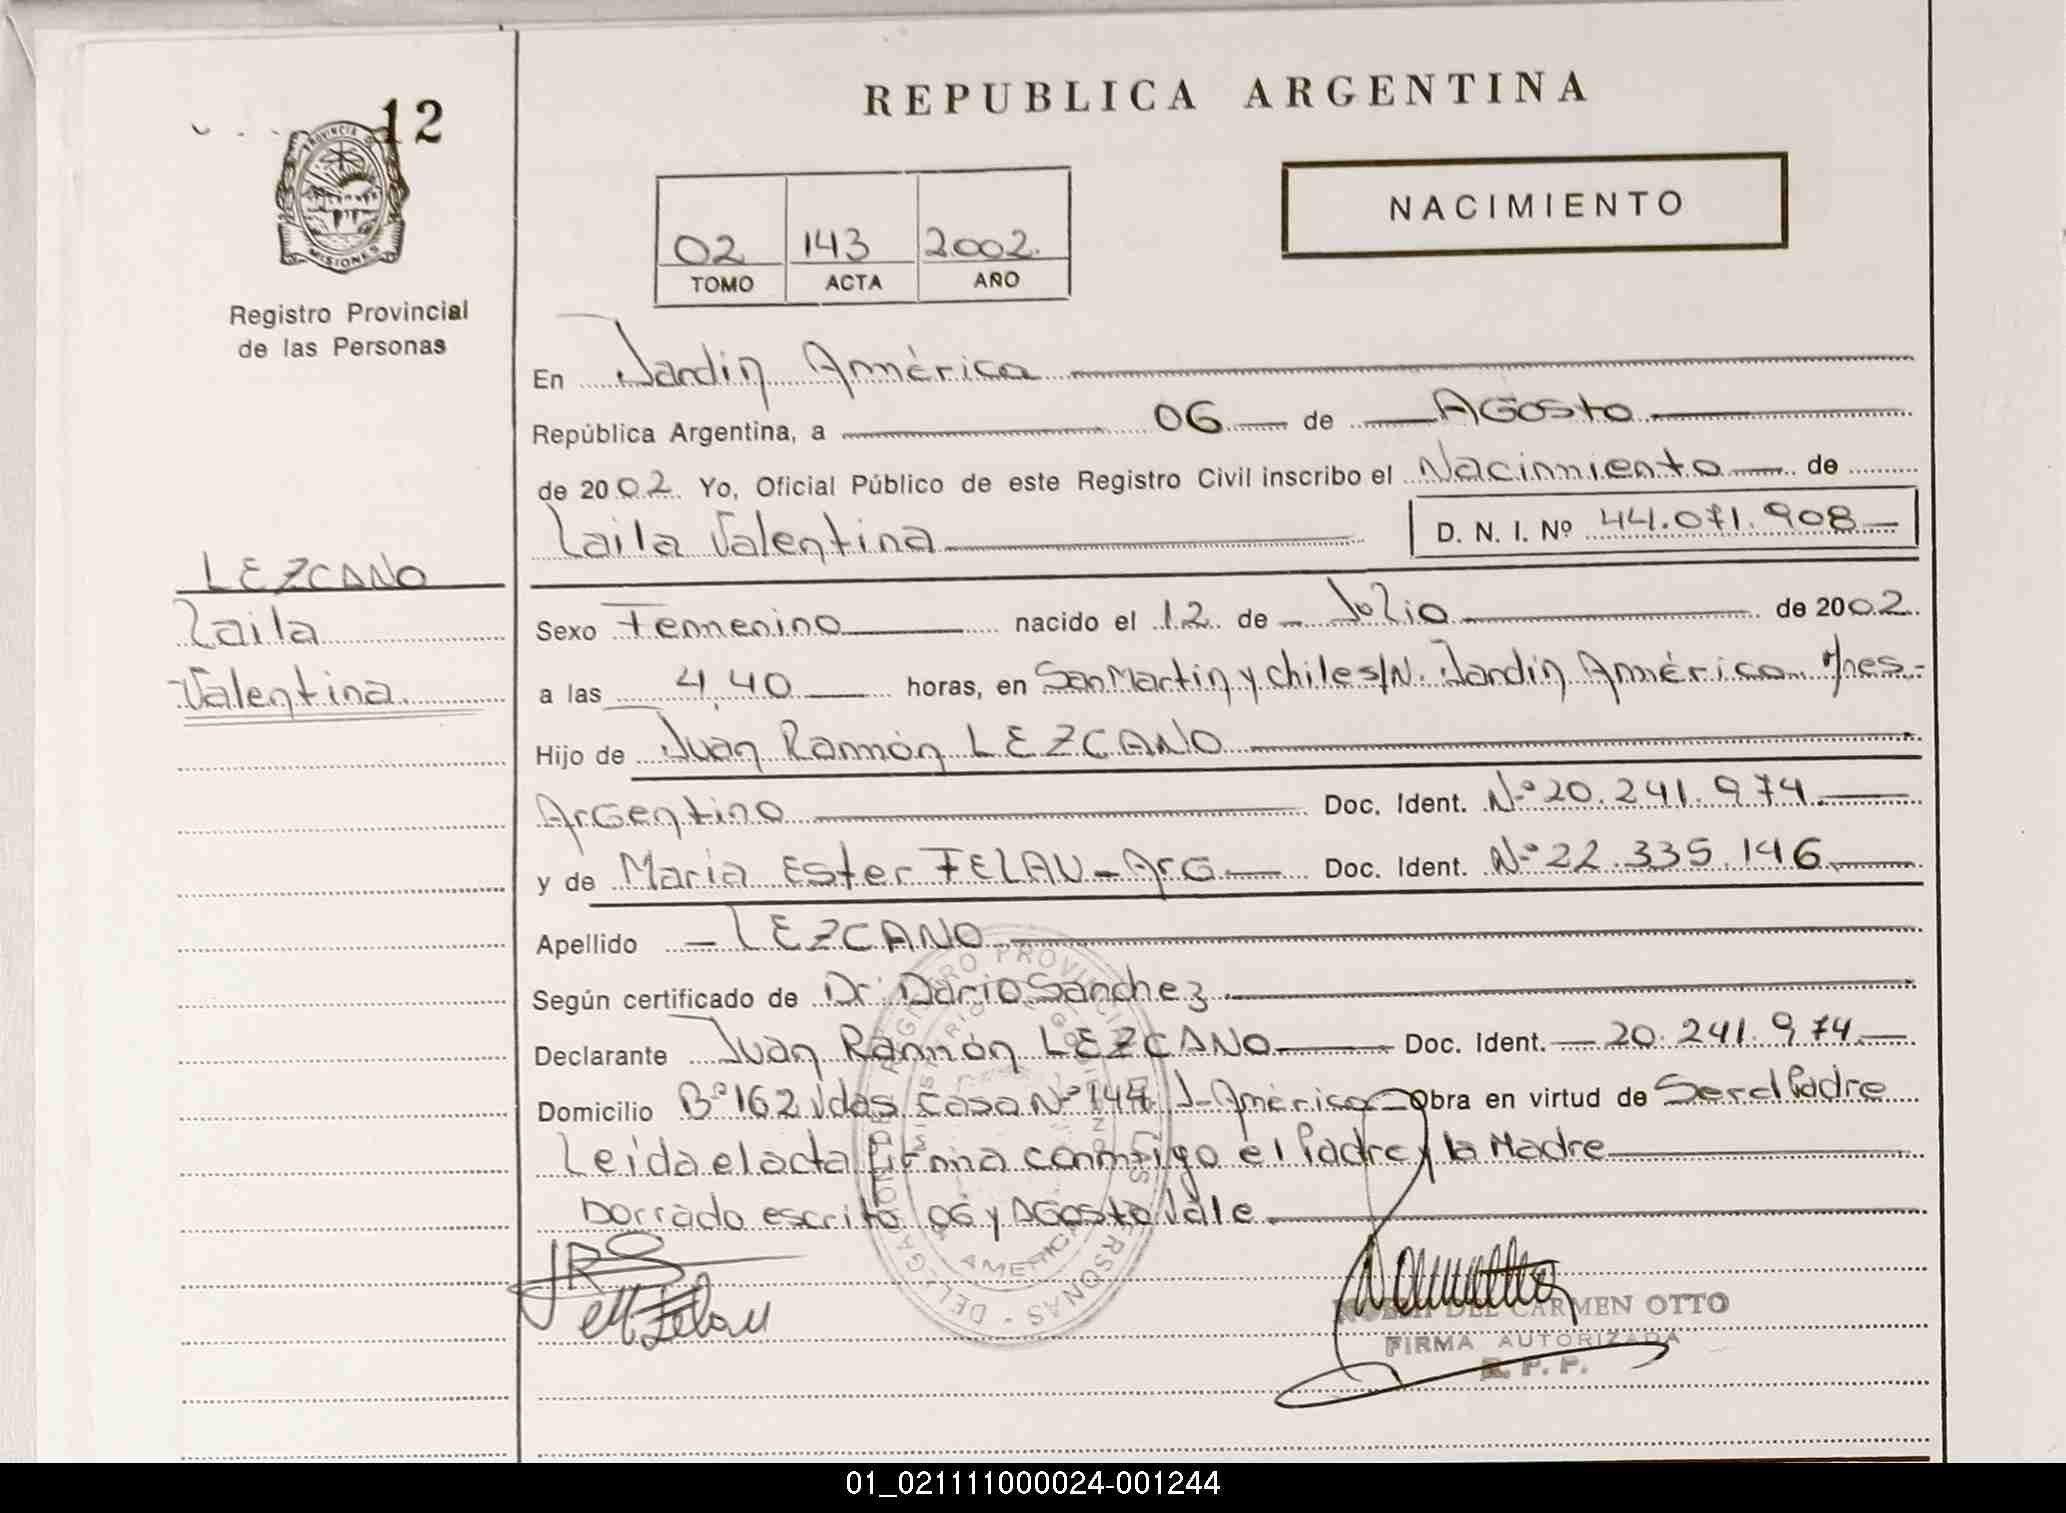 REPUBLICA ARGENTINA
12
PROVINCIA DE
MISIONES
Registro Provincial
de las Personas
02 143 2002
TOMO ACTA AÑO
NACIMIENTO
En Jardín América
República Argentina, a 06 de Agosto
de 2002. Yo, Oficial Público de este Registro Civil inscribo el Nacimiento de
Laila Valentina D. N. I. Nº 44.071.908
LEZCANO
Laila
Valentina
Sexo Femenino nacido el 12 de Julio de 2002.
a las 4,40 horas, en San Martin y Chile s/N. Jardín América Mnes.
Hijo de Juan Ramón LEZCANO
Argentino Doc. Ident. Nº 20.241.974
y de Maria Ester FELAU - Arg Doc. Ident. Nº 22.335.146
Apellido LEZCANO
Según certificado de Dr. Dario Sanchez
Declarante Juan Ramón LEZCANO Doc. Ident. 20.241.974
Domicilio Bº 162 Vdas Casa Nº J. América Obra en virtud de Ser el Padre
Leida el acta firma conmigo el Padre y la Madre
Borrado escrito 06 y Agosto Vale
DEL CARMEN OTTO
FIRMA AUTORIZADA
R. P. P.
01_021111000024-001244